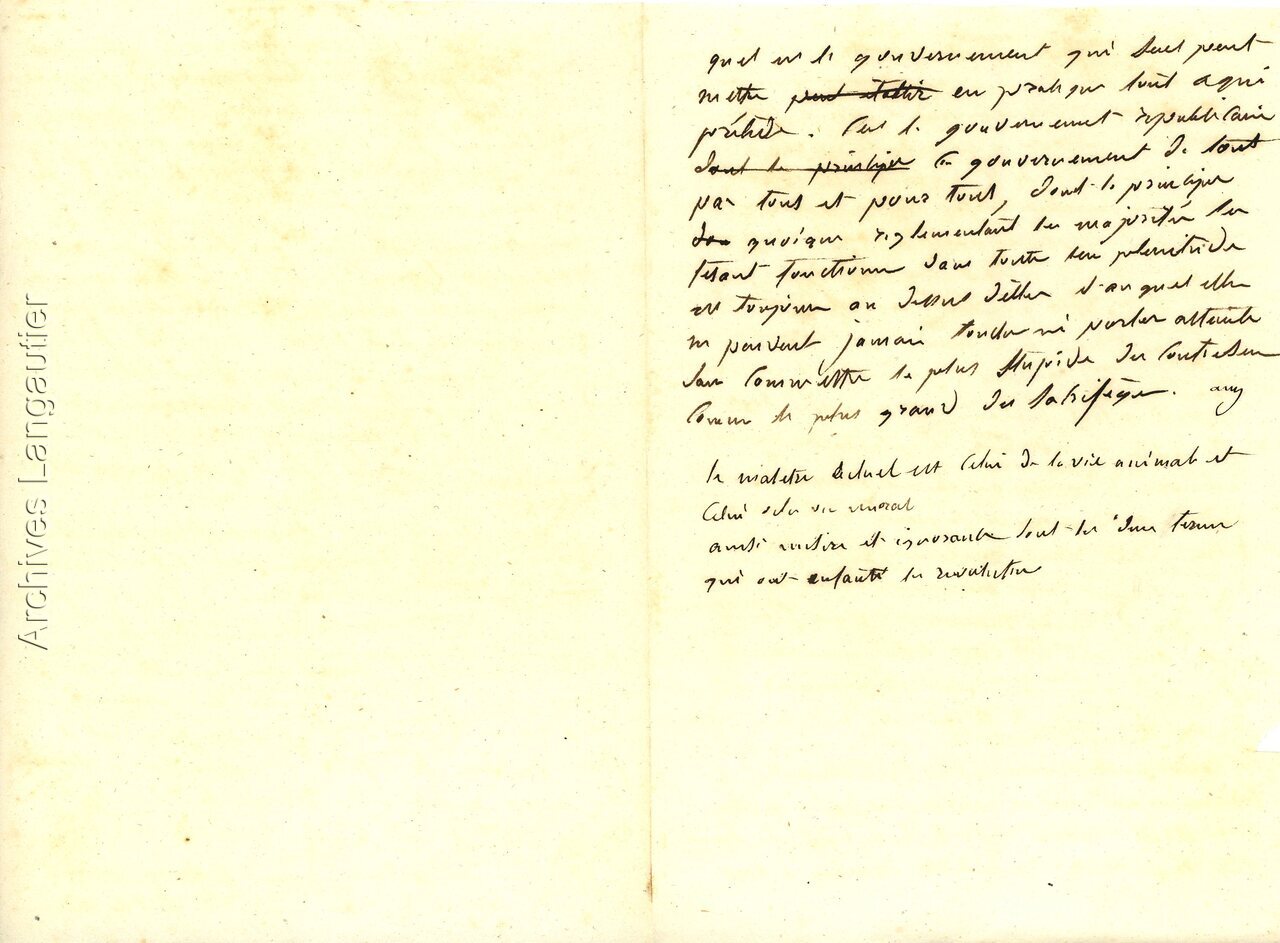 Archives Langautier
quel est le gouvernement qui seul peut
mettre peut établir en pratique tout a qui
précède. C'est le gouvernement republicain
dont le principe le gouvernement de tout
par tous et pour tous, dont le principe
quoique reglementant les majorités les
fesant fonctionner dans toute leur plenitude
est toujours au dessus d'elles et auquel elles
ne peuvent jamais toucher ni porter atteinte
sans commettre le plus stupide des contresens
comme le plus grand des sacrilèges.
le maletre actuel est celui de la vie animale et
celui de la vie moral
ainsi misère et ignorance sont les deux termes
qui ont enfanté les revolution